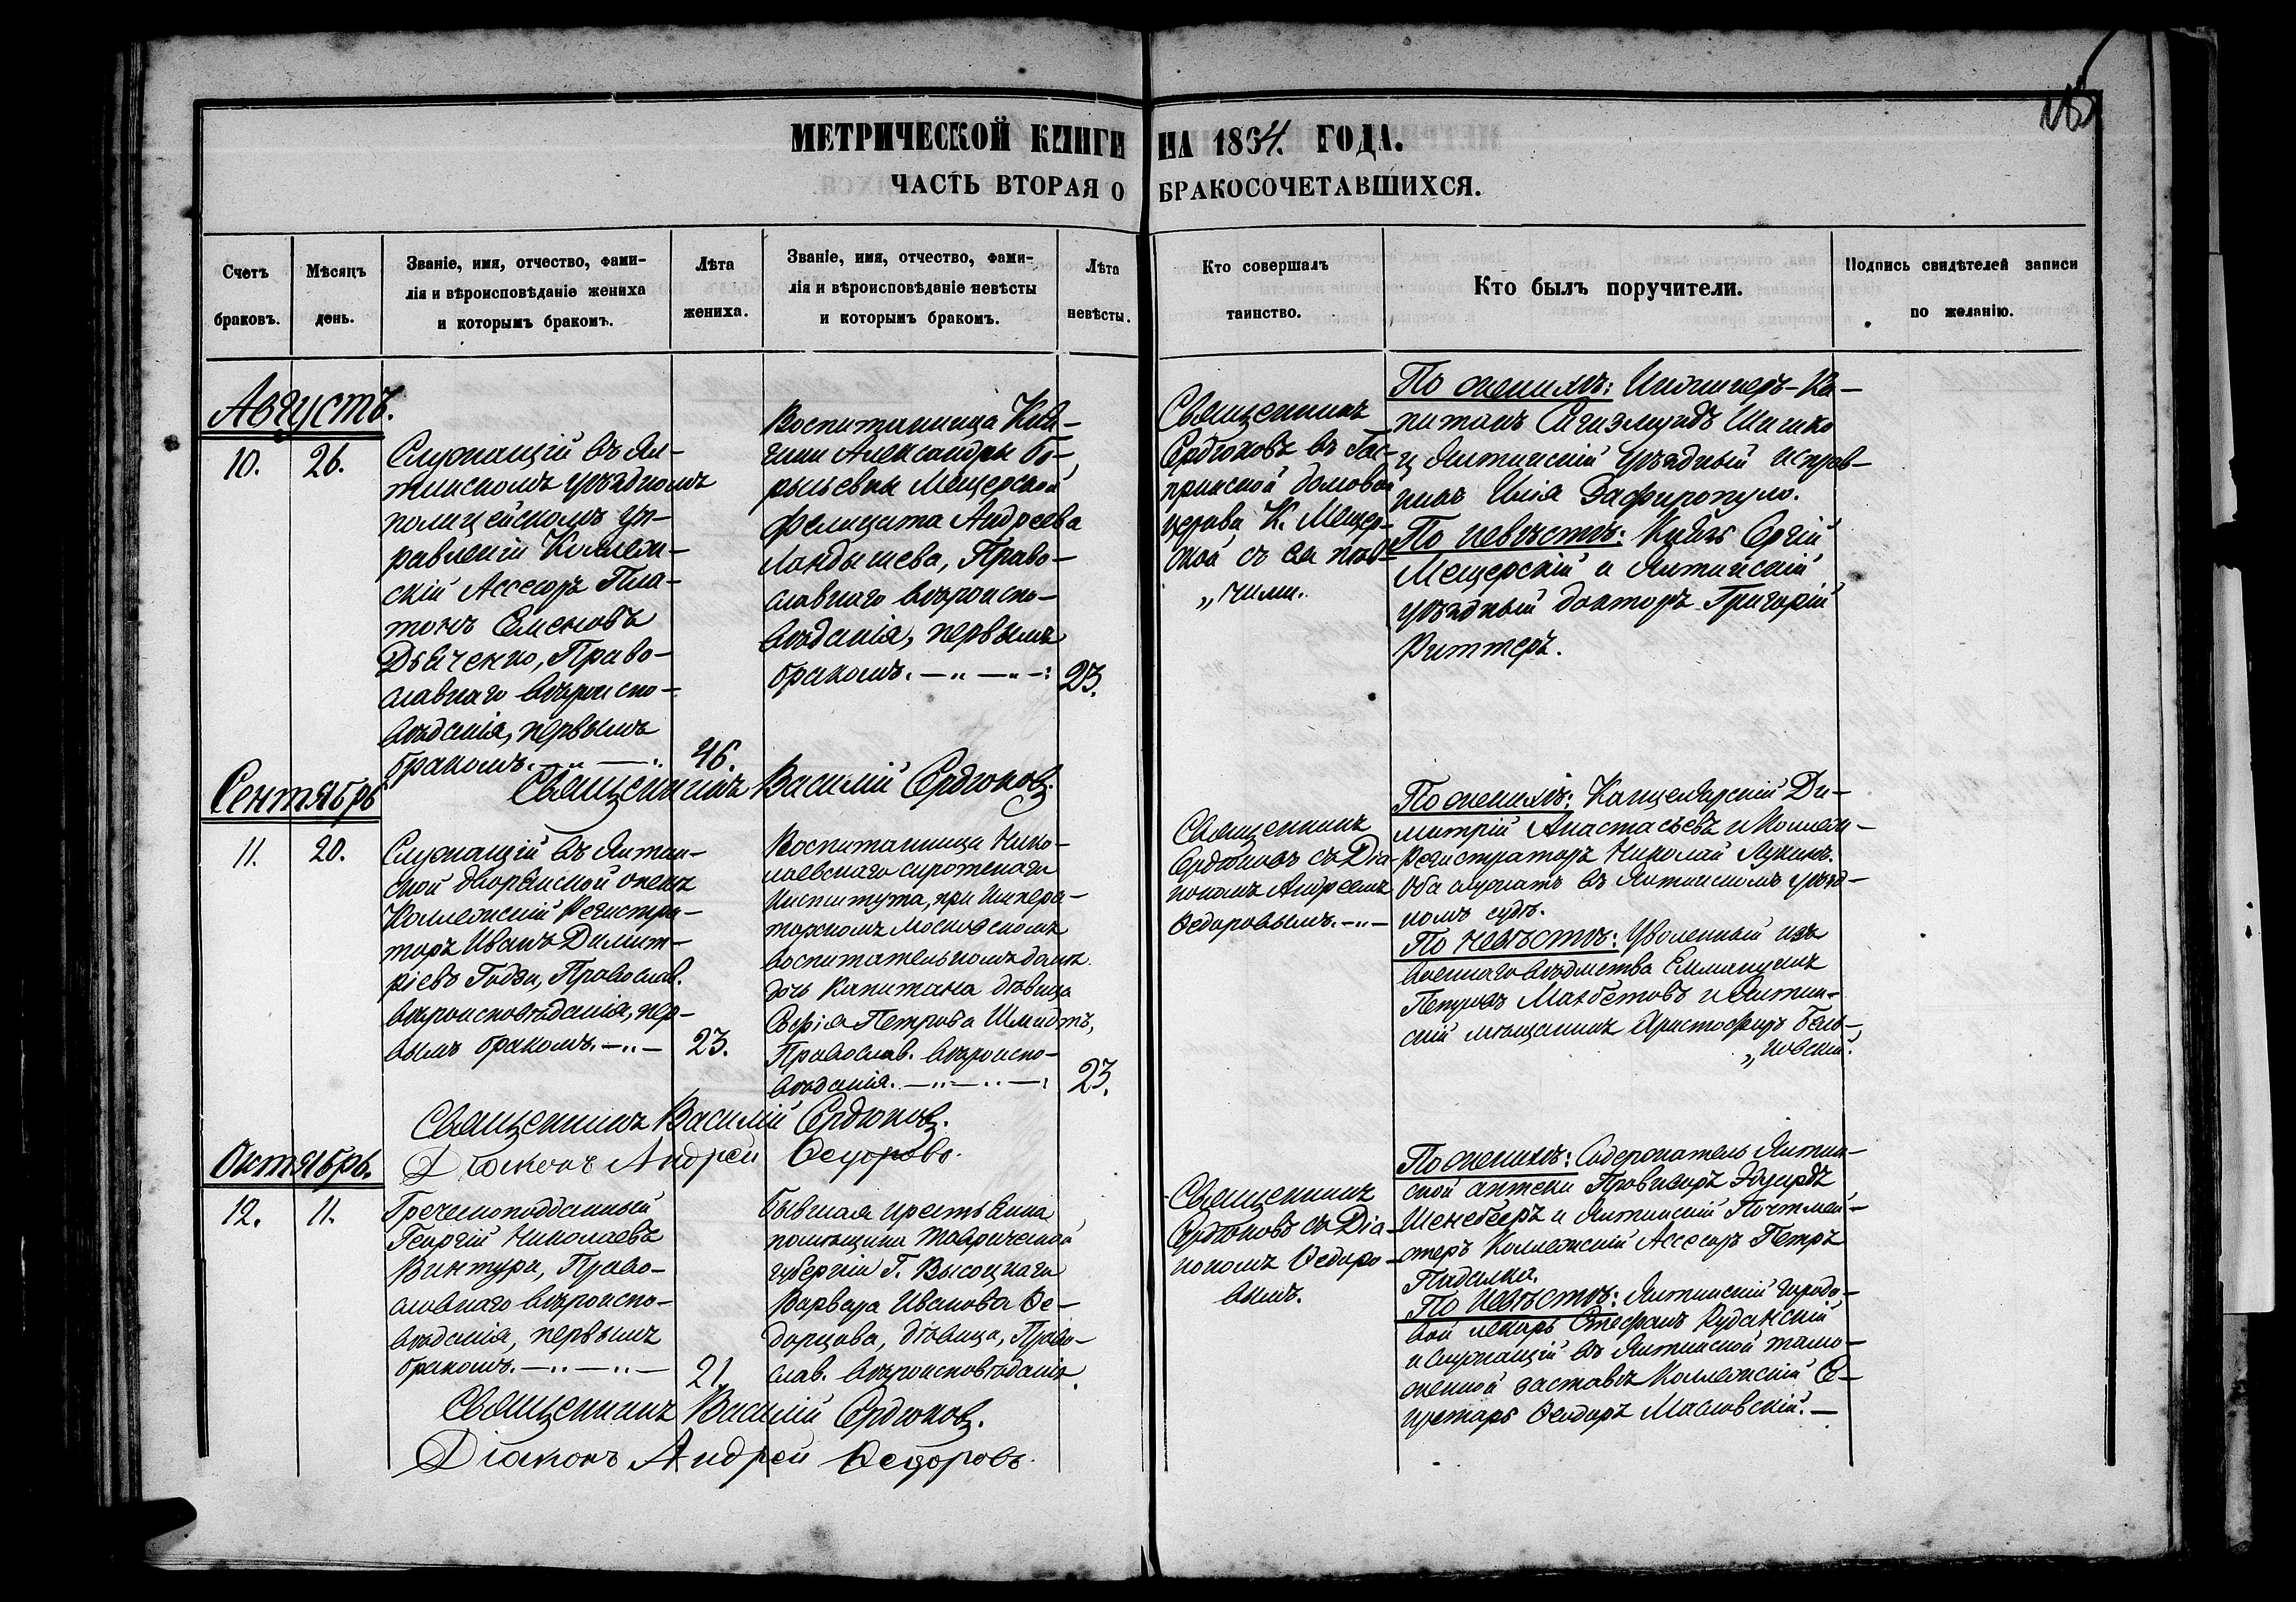 МЕТРИЧЕСКОЙ КНИГИ НА 1864. ГОДА.
ЧАСТЬ ВТОРАЯ О БРАКОСОЧЕТАВШИХСЯ.
Счетъ
браковъ.
Мѣсяцъ
день.
Званіе, имя, отчество, фами-
лія и вѣроисповѣданіе жениха
и которымъ бракомъ.
Лѣта
жениха.
Званіе, имя, отчество, фами-
лія и вѣроисповѣданіе невѣсты
и которымъ бракомъ.
Лѣта
невѣсты.
Кто совершалъ
таинство.
Кто былъ поручители.
Подпись свидѣтелей записи
по желанію.
Августъ.
10.
26.
Служащій въ Ял-
тинскомъ уѣздномъ
полицейскомъ уп-
равленіи Коллеж-
скій Ассесоръ Пла-
тонъ Семеновъ
Дьяченко, Право-
славнаго вѣроиспо-
вѣданія, первымъ
бракомъ.
46.
Воспитанница Кня-
гини Александры Бо-
рисьевны Мещерской
Фелицата Андреева
Ландышева, Право-
славнаго вѣроиспо-
вѣданія, первымъ
бракомъ.
23.
Священникъ
Сердюковъ въ Гас-
принской домовой
церкви К. Мещер-
ской съ
По женихѣ: Инженеръ-Ка-
питанъ Сигизмундъ Шишко
и Ялтинскій уѣздный исправ-
никъ Илія Зафиропуло.
По невѣстѣ: Князь Сергій
Мещерскій и Ялтинскій
уѣздный докторъ Григорій
Риттеръ.
Священникъ Василій Сердюковъ.
Сентябрь
11.
20.
Служащій въ Ялтин-
ской дворянской опекѣ
Коллежскій Регистра-
торъ Иванъ Димит-
ріевъ Годзи, Православ.
вѣроисповѣданія, пер-
вымъ бракомъ.
23.
Воспитанница Нико-
лаевскаго сиротскаго
Института, при Импера-
торскомъ Московскомъ
воспитательномъ домѣ
дочь Капитана дѣвица
Софія Петрова Шмидтъ,
Православ. вѣроиспо-
вѣданія.
23.
Священникъ
Сердюковъ съ Діа-
кономъ Андреемъ
Ѳедоровымъ.
По женихѣ: Канцелярскій Ди-
митрій Анастасьевъ и Коллеж-
Регистраторъ Николай Лукинъ.
Оба служатъ въ Ялтинскомъ уѣзд-
номъ судѣ.
По невѣстѣ: Уволенный изъ
военнаго вѣдмства Еммануилъ
Петровъ Махбетовъ и Ялтин-
скій мѣщанинъ Христофоръ Бель-
„ковскій.
Священникъ Василій Сердюковъ.
Діаконъ Андрей Ѳедоровъ.
Октябрь.
12.
11.
Греческоподданный
Георгій Николаевъ
Винтура, Право-
славнаго вѣроиспо-
вѣданія, первымъ
бракомъ.
21.
Бывшая крестьянка
помѣщика Таврической
губерніи Г. Высоцкаго
Варвара Иванова Ѳе-
дорцова, дѣвица, Право-
слав. вѣроисповѣданія.
Священникъ
Сердюковъ съ Діа-
кономъ Ѳедоро-
вымъ.
По женихѣ: Содержатель Ялтин-
ской аптеки Провизоръ Эдуардъ
и Ялтинскій Почтмей-
стеръ Коллежскій Ассесоръ Петръ
Падалка.
По невѣстѣ: Ялтинскій городо-
вой лекарь Стефанъ Руданскій
и служащій въ Ялтинской тамо-
женной заставѣ Коллежскій Се-
кретарь Ѳеодоръ Масловскій.
Священникъ Василій Сердюковъ.
Діаконъ Андрей Ѳедоровъ.